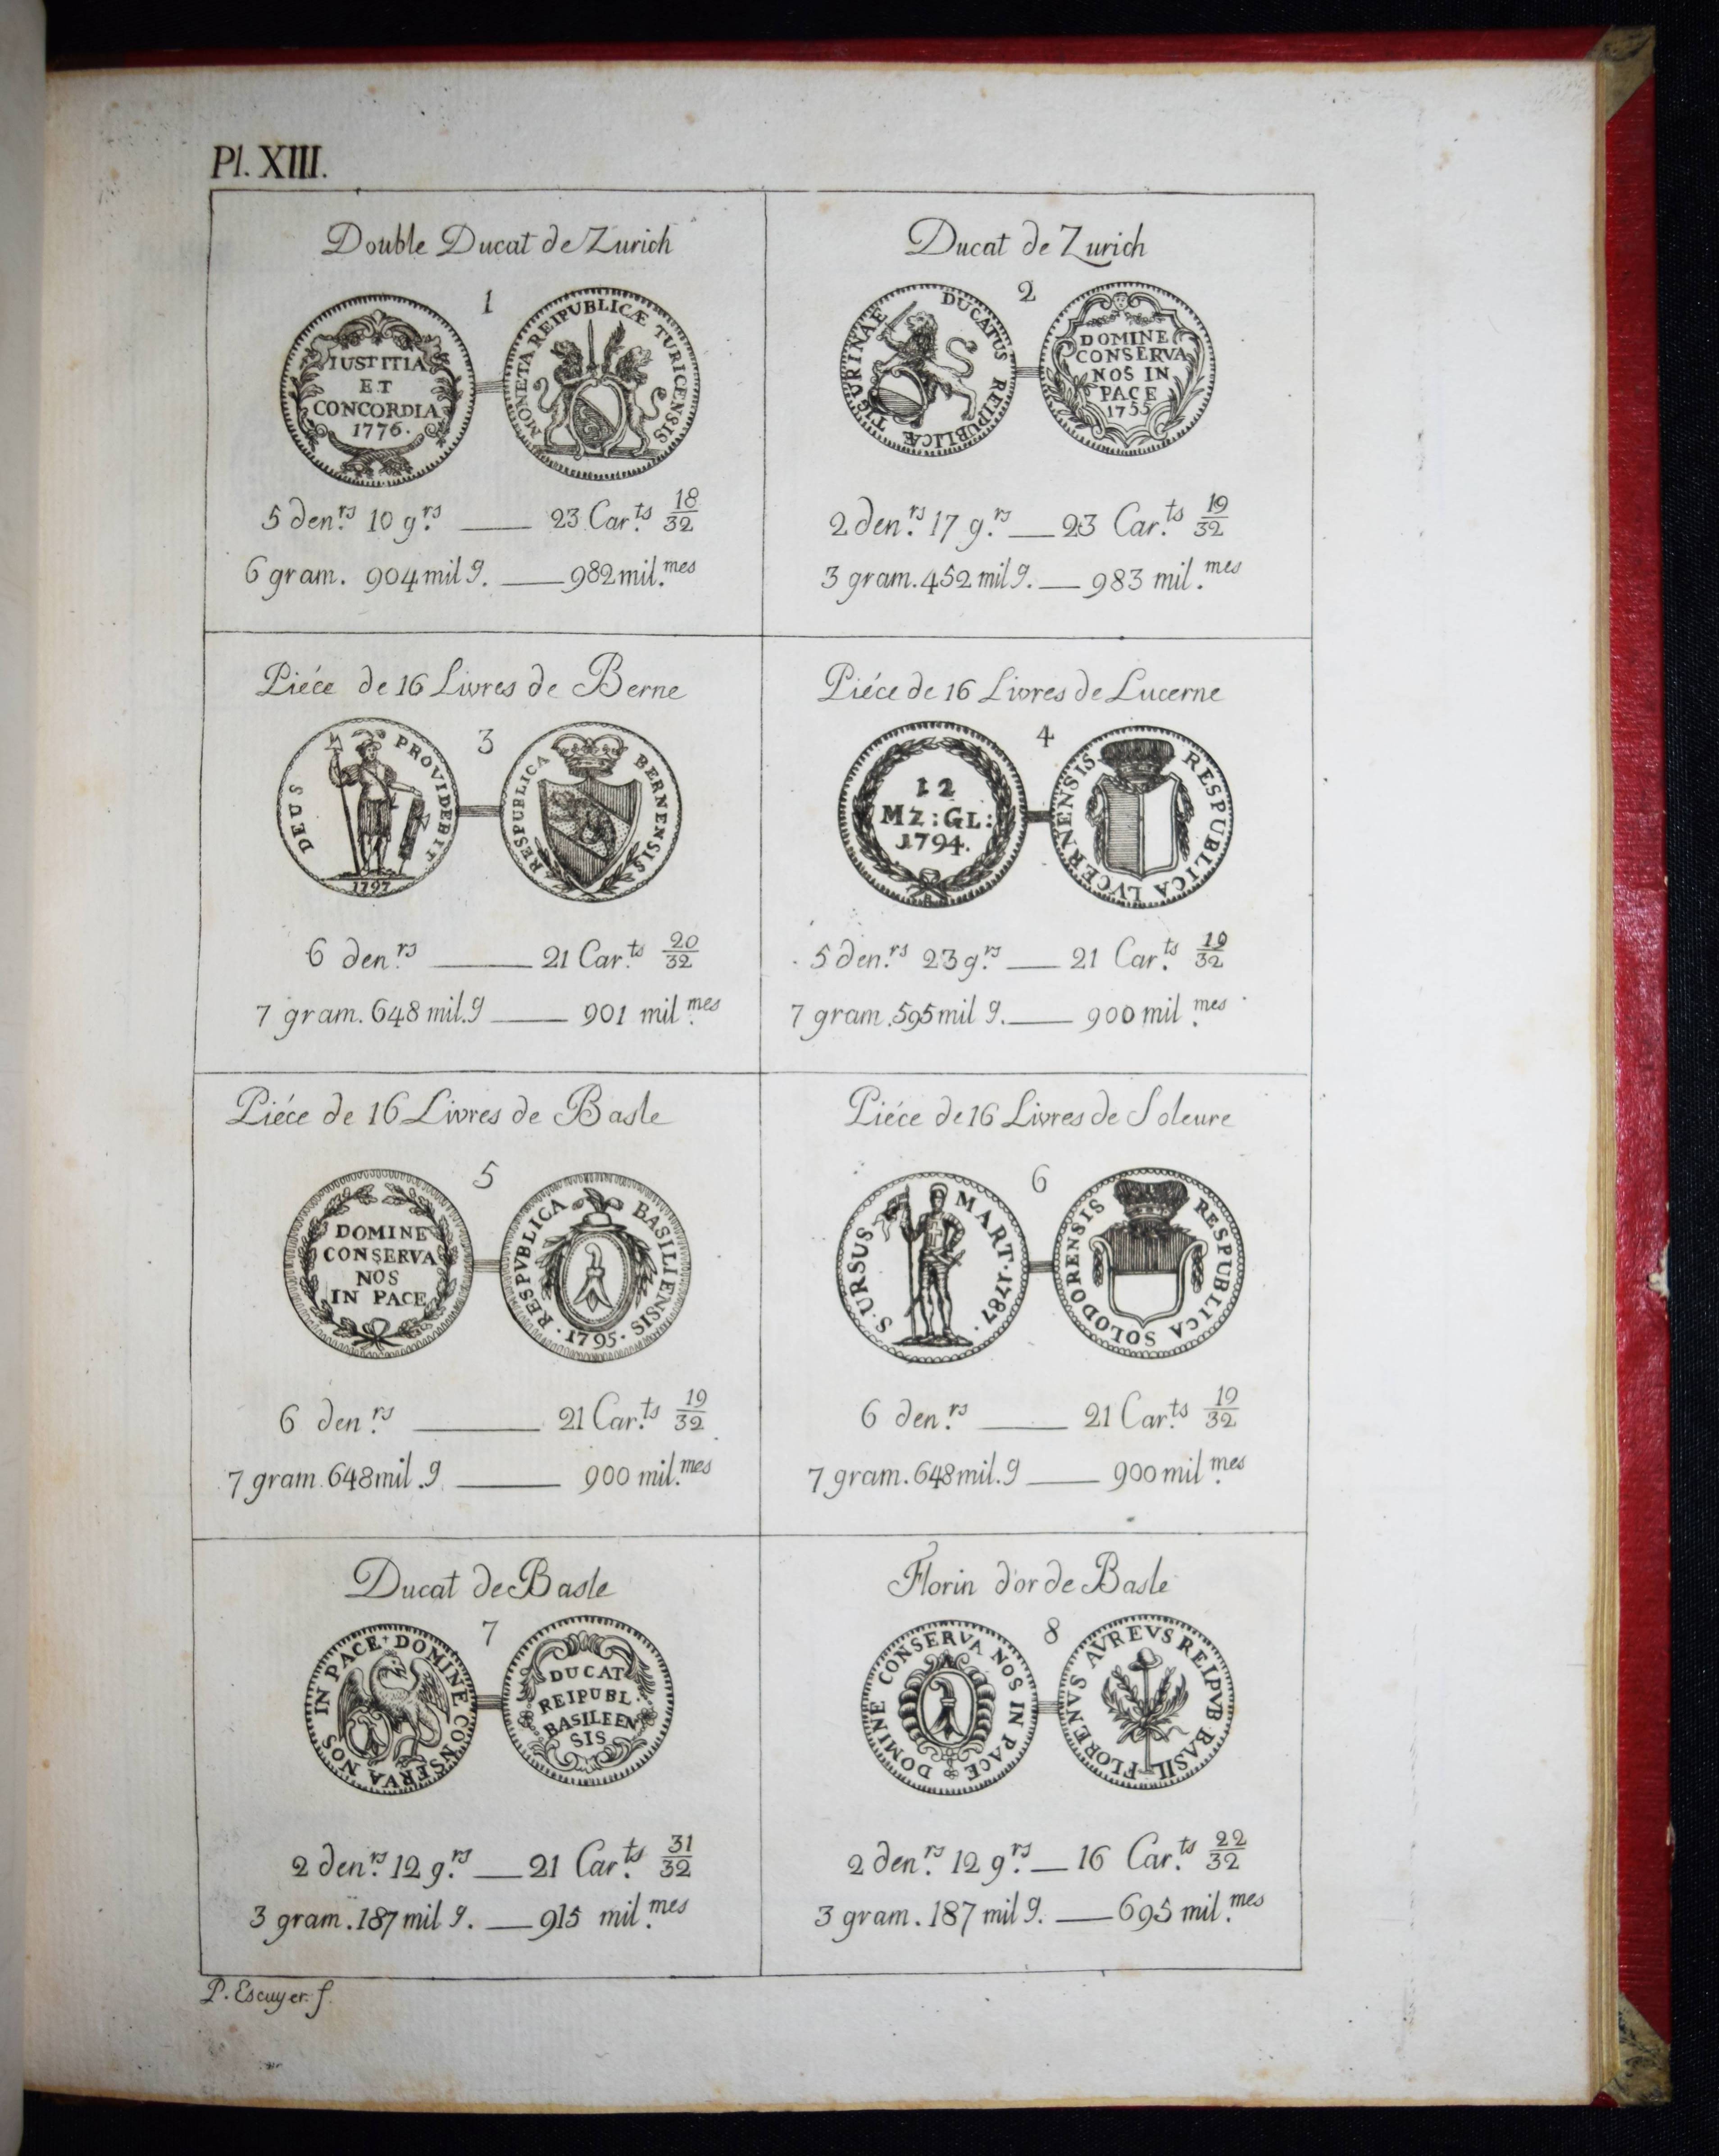 Pl. XIII.
Double Ducat de Zurich
1
IUSTITIA
ET
CONCORDIA
1776.
MONETA REIPUBLICÆ TURICENSIS
5 den.rs 10 g.rs ___ 23 Car.ts 18/32
6 gram. 904 mil g. ___ 982 mil.mes
Ducat de Zurich
2
DUCATUS REIPUBLICÆ TIGURINAE
DOMINE
CONSERVA
NOS IN
PACE
1755
2 den.rs 17 g.rs ___ 23 Car.ts 19/32
3 gram. 452 mil g. ___ 983 mil.mes
Piéce de 16 Livres de Berne
3
DEUS PROVIDEBIT
1797
RESPUBLICA BERNENSIS
6 den.rs ___ 21 Car.ts 20/32
7 gram. 648 mil. g ___ 901 mil.mes
Piéce de 16 Livres de Lucerne
4
12
MZ : GL :
1794.
B
RESPUBLICA LVCERNENSIS
5 den.rs 23 g.rs ___ 21 Car.ts 19/32
7 gram. 595 mil g. ___ 900 mil.mes
Piéce de 16 Livres de Basle
5
DOMINE
CONSERVA
NOS
IN PACE
RESPVBLICA BASILIENSIS
· 1795 ·
6 den.rs ___ 21 Car.ts 19/32
7 gram. 648 mil. g ___ 900 mil.mes
Piéce de 16 Livres de Soleure
6
S · URSUS MART · 1787 ·
RESPUBLICA SOLODORENSIS
6 den.rs ___ 21 Car.ts 19/32
7 gram. 648 mil. g ___ 900 mil.mes
Ducat de Basle
7
DOMINE CONSERVA NOS IN PACE
DUCAT
REIPUBL ·
BASILEEN
SIS
2 den.rs 12 g.rs ___ 21 Car.ts 31/32
3 gram. 187 mil g. ___ 915 mil.mes
Florin d'or de Basle
8
DOMINE CONSERVA NOS IN PACE
FLORENVS AVREVS REIPVB · BASIL
2 den.rs 12 g.rs ___ 16 Car.ts 22/32
3 gram. 187 mil g. ___ 695 mil.mes
P. Escuyer. f.